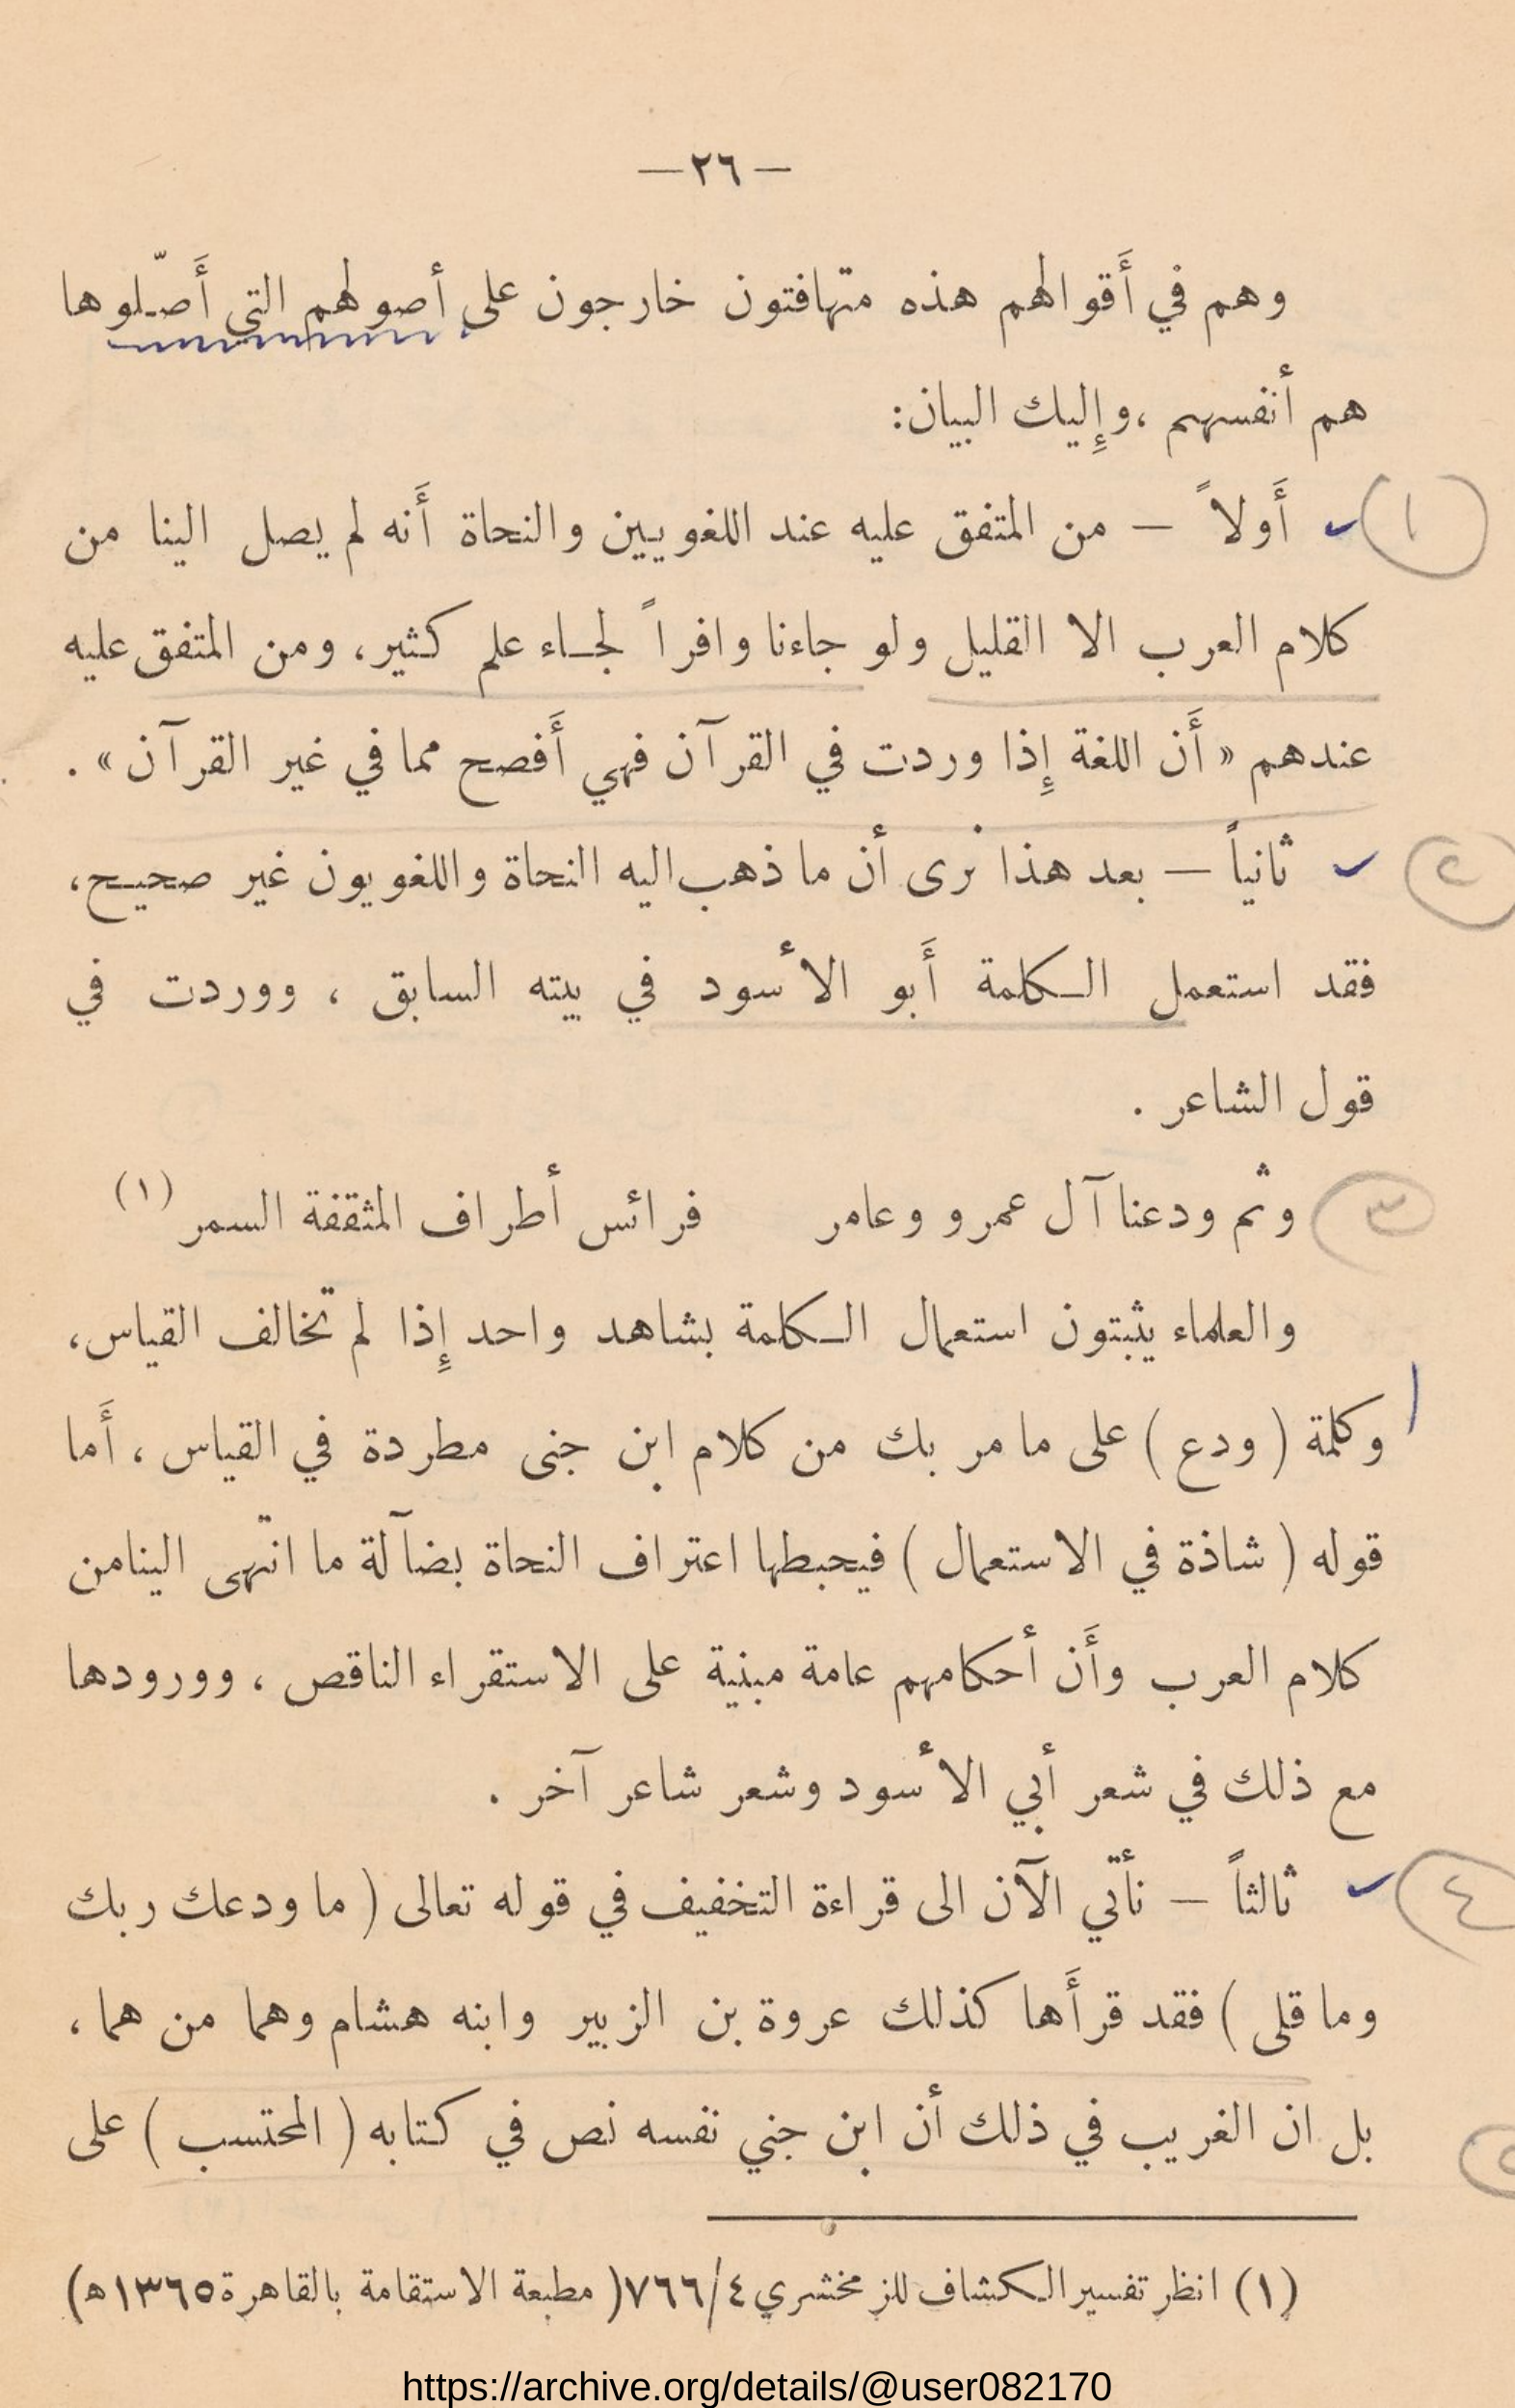 — ٢٦ —
وهم في أَقوالهم هذه متهافتون خارجون على أصولهم التي أَصّلوها
هم أنفسهم ، وإِليك البيان:
(١) أَولاً — من المتفق عليه عند اللغويين والنحاة أَنه لم يصل الينا من
كلام العرب الا القليل ولو جاءنا وافراً لجاء علم كثير، ومن المتفق عليه
عندهم « أَن اللغة إِذا وردت في القرآن فهي أَفصح مما في غير القرآن » .
(٢) ثانياً — بعد هذا نرى أن ما ذهب اليه النحاة واللغويون غير صحيح،
فقد استعمل الكلمة أَبو الأسود في بيته السابق ، ووردت في
قول الشاعر .
(٣) وثم ودعنا آل عمرو وعامر فرائس أطراف المثقفة السمر (١)
والعلماء يثبتون استعمال الكلمة بشاهد واحد إِذا لم تخالف القياس،
وكلمة ( ودع ) على ما مر بك من كلام ابن جنى مطردة في القياس ، أَما
قوله ( شاذة في الاستعمال ) فيحبطها اعتراف النحاة بضآلة ما انتهى الينا من
كلام العرب وأَن أحكامهم عامة مبنية على الاستقراء الناقص ، وورودها
مع ذلك في شعر أبي الأسود وشعر شاعر آخر .
(٤) ثالثاً — نأتي الآن الى قراءة التخفيف في قوله تعالى ( ما ودعك ربك
وما قلى ) فقد قرأَها كذلك عروة بن الزبير وابنه هشام وهما من هما ،
(٥) بل ان الغريب في ذلك أن ابن جني نفسه نص في كتابه ( المحتسب ) على
(١) انظر تفسير الكشاف للزمخشري ٧٦٦/٤ ( مطبعة الاستقامة بالقاهرة ١٣٦٥ ه)
https://archive.org/details/@user082170